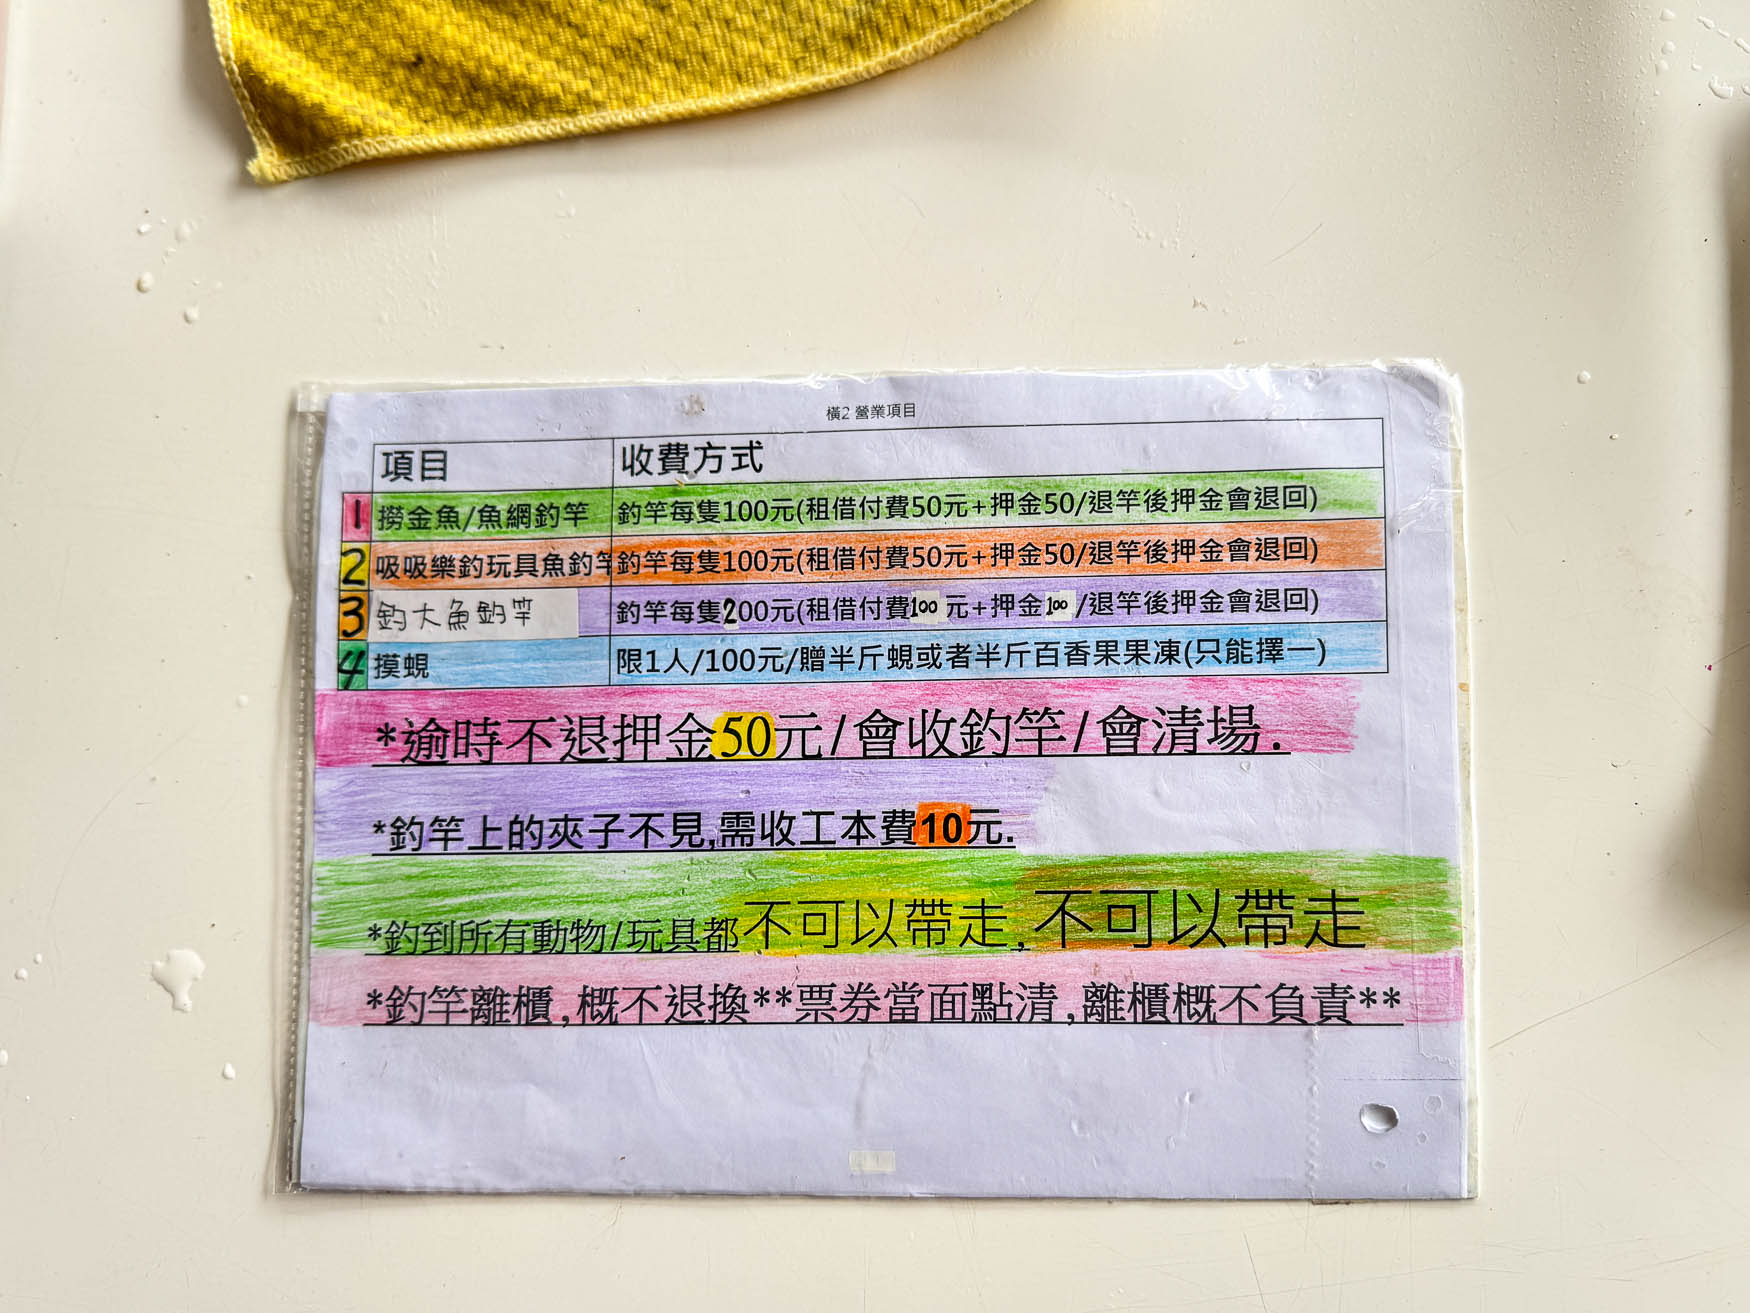 橫2 營業項目
項目 收費方式
1 撈金魚/魚網釣竿 釣竿每隻100元(租借付費50元+押金50/退竿後押金會退回)
2 吸吸樂釣玩具魚釣竿 釣竿每隻100元(租借付費50元+押金50/退竿後押金會退回)
3 釣大魚釣竿 釣竿每隻200元(租借付費100元+押金100/退竿後押金會退回)
4 摸蜆 限1人/100元/贈半斤蜆或者半斤百香果果凍(只能擇一)
*逾時不退押金50元/會收釣竿/會清場.
*釣竿上的夾子不見,需收工本費10元.
*釣到所有動物/玩具都不可以帶走,不可以帶走
*釣竿離櫃,概不退換**票券當面點清,離櫃概不負責**